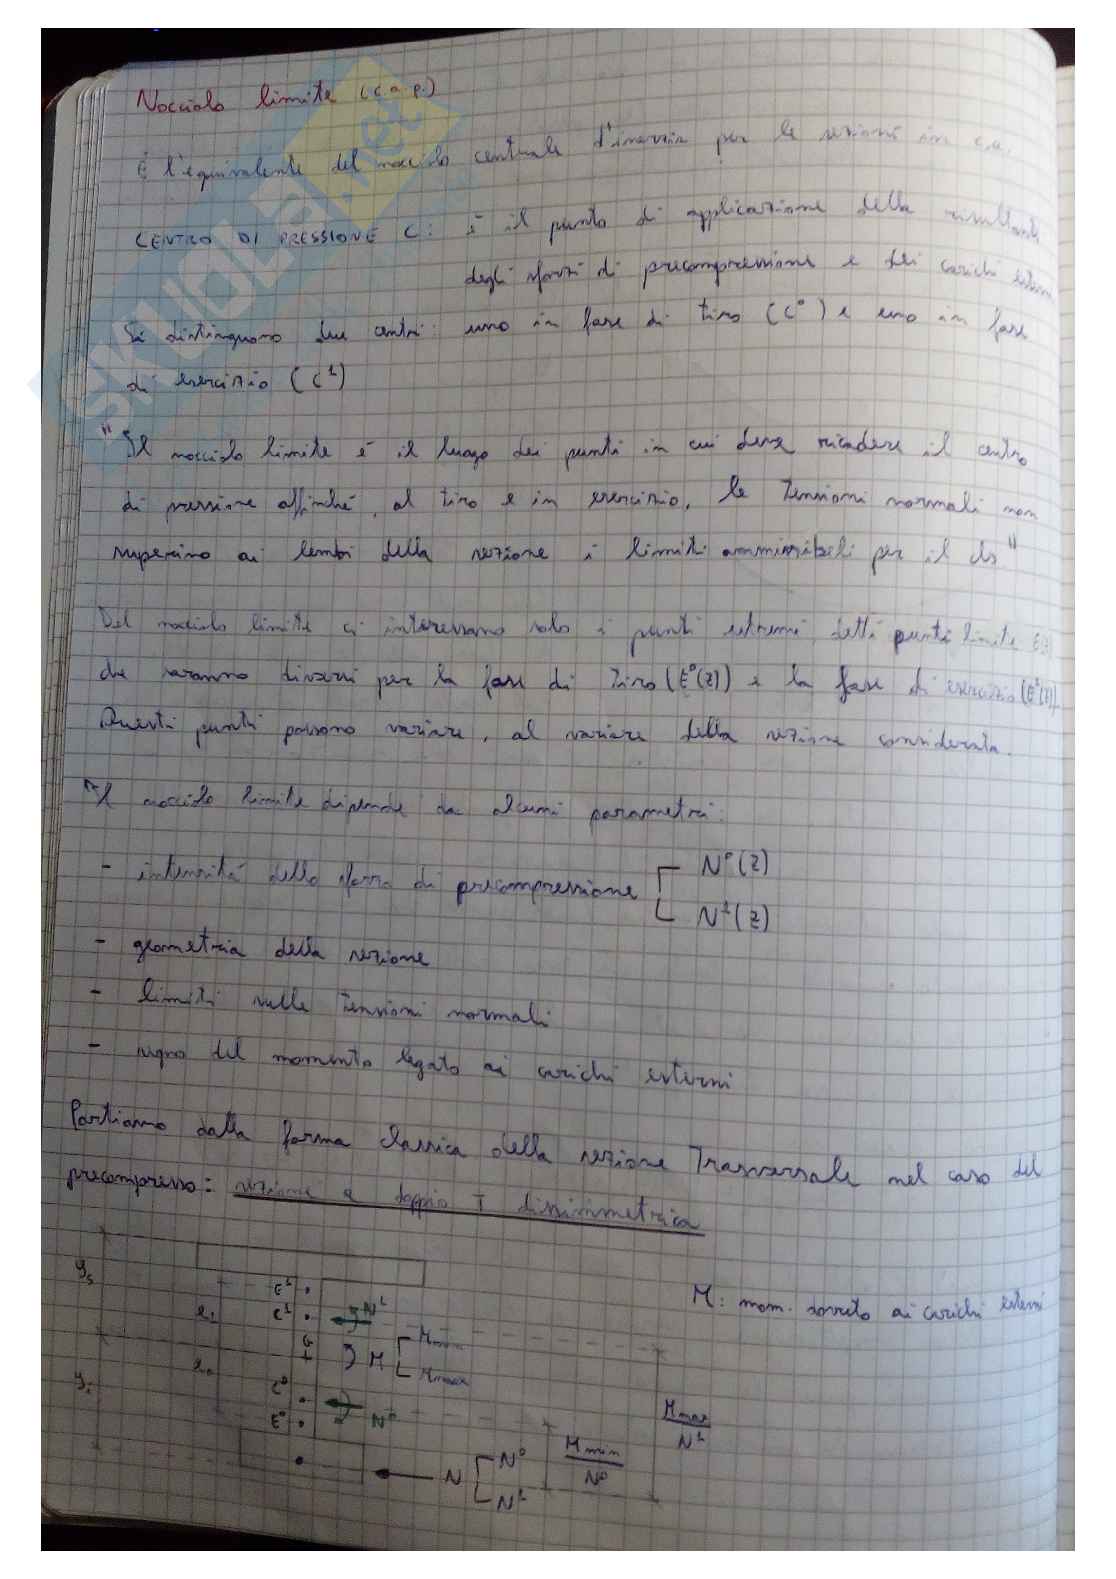 Nocciolo limite (c.a.p.)
È l'equivalente del nocciolo centrale d'inerzia per le sezioni in c.a.
CENTRO DI PRESSIONE C: è il punto di applicazione della risultante
degli sforzi di precompressione e dei carichi esterni
Si distinguono due centri: uno in fase di tiro (C°) e uno in fase
di esercizio (C¹)
"Il nocciolo limite è il luogo dei punti in cui deve ricadere il centro
di pressione affinché, al tiro e in esercizio, le tensioni normali non
superino ai lembi della sezione i limiti ammissibili per il cls"
Del nocciolo limite ci interessano solo i punti estremi, detti punti limite E(z)
che saranno diversi per la fase di tiro (E°(z)) e la fase di esercizio (E¹(z)).
Questi punti possono variare, al variare della sezione considerata.
Il nocciolo limite dipende da alcuni parametri:
- intensità dello sforzo di precompressione N°(z)
N¹(z)
- geometria della sezione
- limiti sulle tensioni normali
- segno del momento legato ai carichi esterni
Partiamo dalla forma classica della sezione trasversale nel caso del
precompresso: sezione a doppio T dissimmetrica
M: mom. dovuto ai carichi esterni
ys
E¹
e1
C¹
N¹
G
M
Mmin
Mmax
e0
yi
C°
N°
E°
Mmax
N¹
Mmin
N°
N
N°
N¹
SKUOLA.net